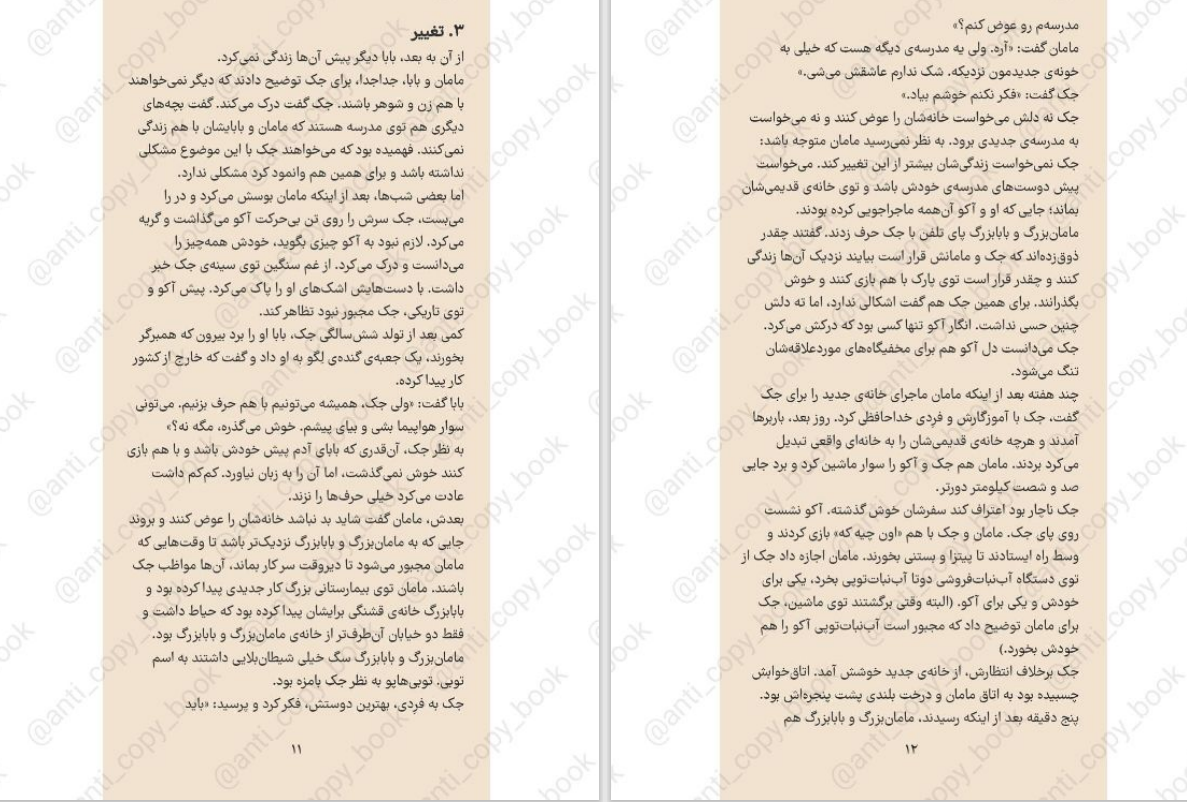 ۳. تغییر
از آن به بعد، بابا دیگر پیش آن‌ها زندگی نمی‌کرد.
مامان و بابا، جداجدا، برای جک توضیح دادند که دیگر نمی‌خواهند
با هم زن و شوهر باشند. جک گفت درک می‌کند. گفت بچه‌های
دیگری هم توی مدرسه هستند که مامان و بابایشان با هم زندگی
نمی‌کنند. فهمیده بود که می‌خواهند جک با این موضوع مشکلی
نداشته باشد و برای همین هم وانمود کرد مشکلی ندارد.
اما بعضی شب‌ها، بعد از اینکه مامان بوسش می‌کرد و در را
می‌بست، جک سرش را روی تن بی‌حرکت آکو می‌گذاشت و گریه
می‌کرد. لازم نبود به آکو چیزی بگوید، خودش همه‌چیز را
می‌دانست و درک می‌کرد. از غم سنگین توی سینه‌ی جک خبر
داشت. با دست‌هایش اشک‌های او را پاک می‌کرد. پیش آکو و
توی تاریکی، جک مجبور نبود تظاهر کند.
کمی بعد از تولد شش‌سالگی جک، بابا او را برد بیرون که همبرگر
بخورند، یک جعبه‌ی گنده‌ی لگو به او داد و گفت که خارج از کشور
کار پیدا کرده.
بابا گفت: «ولی جک، همیشه می‌تونیم با هم حرف بزنیم. می‌تونی
سوار هواپیما بشی و بیای پیشم. خوش می‌گذره، مگه نه؟»
به نظر جک، آن‌قدری که بابای آدم پیش خودش باشد و با هم بازی
کنند خوش نمی‌گذشت، اما آن را به زبان نیاورد. کم‌کم داشت
عادت می‌کرد خیلی حرف‌ها را نزند.
بعدش، مامان گفت شاید بد نباشد خانه‌شان را عوض کنند و بروند
جایی که به مامان‌بزرگ و بابابزرگ نزدیک‌تر باشد تا وقت‌هایی که
مامان مجبور می‌شود تا دیروقت سر کار بماند، آن‌ها مواظب جک
باشند. مامان توی بیمارستانی بزرگ کار جدیدی پیدا کرده بود و
بابابزرگ خانه‌ی قشنگی برایشان پیدا کرده بود که حیاط داشت و
فقط دو خیابان آن‌طرف‌تر از خانه‌ی مامان‌بزرگ و بابابزرگ بود.
مامان‌بزرگ و بابابزرگ سگ خیلی شیطان‌بلایی داشتند به اسم
توبی. توبی‌هاپو به نظر جک بامزه بود.
جک به فرِدی، بهترین دوستش، فکر کرد و پرسید: «باید
۱۱
مدرسه‌م رو عوض کنم؟»
مامان گفت: «آره. ولی یه مدرسه‌ی دیگه هست که خیلی به
خونه‌ی جدیدمون نزدیکه. شک ندارم عاشقش می‌شی.»
جک گفت: «فکر نکنم خوشم بیاد.»
جک نه دلش می‌خواست خانه‌شان را عوض کنند و نه می‌خواست
به مدرسه‌ی جدیدی برود. به نظر نمی‌رسید مامان متوجه باشد:
جک نمی‌خواست زندگی‌شان بیشتر از این تغییر کند. می‌خواست
پیش دوست‌های مدرسه‌ی خودش باشد و توی خانه‌ی قدیمی‌شان
بماند؛ جایی که او و آکو آن‌همه ماجراجویی کرده بودند.
مامان‌بزرگ و بابابزرگ پای تلفن با جک حرف زدند. گفتند چقدر
ذوق‌زده‌اند که جک و مامانش قرار است بیایند نزدیک آن‌ها زندگی
کنند و چقدر قرار است توی پارک با هم بازی کنند و خوش
بگذرانند. برای همین جک هم گفت اشکالی ندارد، اما ته دلش
چنین حسی نداشت. انگار آکو تنها کسی بود که درکش می‌کرد.
جک می‌دانست دل آکو هم برای مخفیگاه‌های موردعلاقه‌شان
تنگ می‌شود.
چند هفته بعد از اینکه مامان ماجرای خانه‌ی جدید را برای جک
گفت، جک با آموزگارش و فرِدی خداحافظی کرد. روز بعد، باربرها
آمدند و هرچه خانه‌ی قدیمی‌شان را به خانه‌ای واقعی تبدیل
می‌کرد بردند. مامان هم جک و آکو را سوار ماشین کرد و برد جایی
صد و شصت کیلومتر دورتر.
جک ناچار بود اعتراف کند سفرشان خوش گذشته. آکو نشست
روی پای جک. مامان و جک با هم «اون چیه که» بازی کردند و
وسط راه ایستادند تا پیتزا و بستنی بخورند. مامان اجازه داد جک از
توی دستگاه آب‌نبات‌فروشی دوتا آب‌نبات‌توپی بخرد، یکی برای
خودش و یکی برای آکو. (البته وقتی برگشتند توی ماشین، جک
برای مامان توضیح داد که مجبور است آب‌نبات‌توپی آکو را هم
خودش بخورد.)
جک برخلاف انتظارش، از خانه‌ی جدید خوشش آمد. اتاق‌خوابش
چسبیده بود به اتاق مامان و درخت بلندی پشت پنجره‌اش بود.
پنج دقیقه بعد از اینکه رسیدند، مامان‌بزرگ و بابابزرگ هم
۱۲
@anti_copy_book